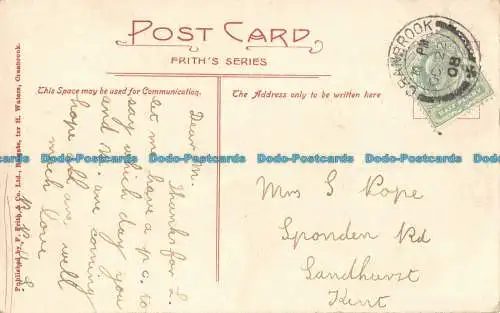 POST CARD
FRITH'S SERIES
This Space may be used for Communication.
The Address only to be written here
CRANBROOK
PM
22
08
Published by F. Frith & Co., Ltd., Reigate, for H. Waters, Cranbrook.
Dear M.
Thanks for L.
let me have a p.c. to
say which day you
and are coming
hope all are well
much love
Mrs S Pope
Sponden Rd
Sandhurst
Kent
Postcards
bidStart: Postcards